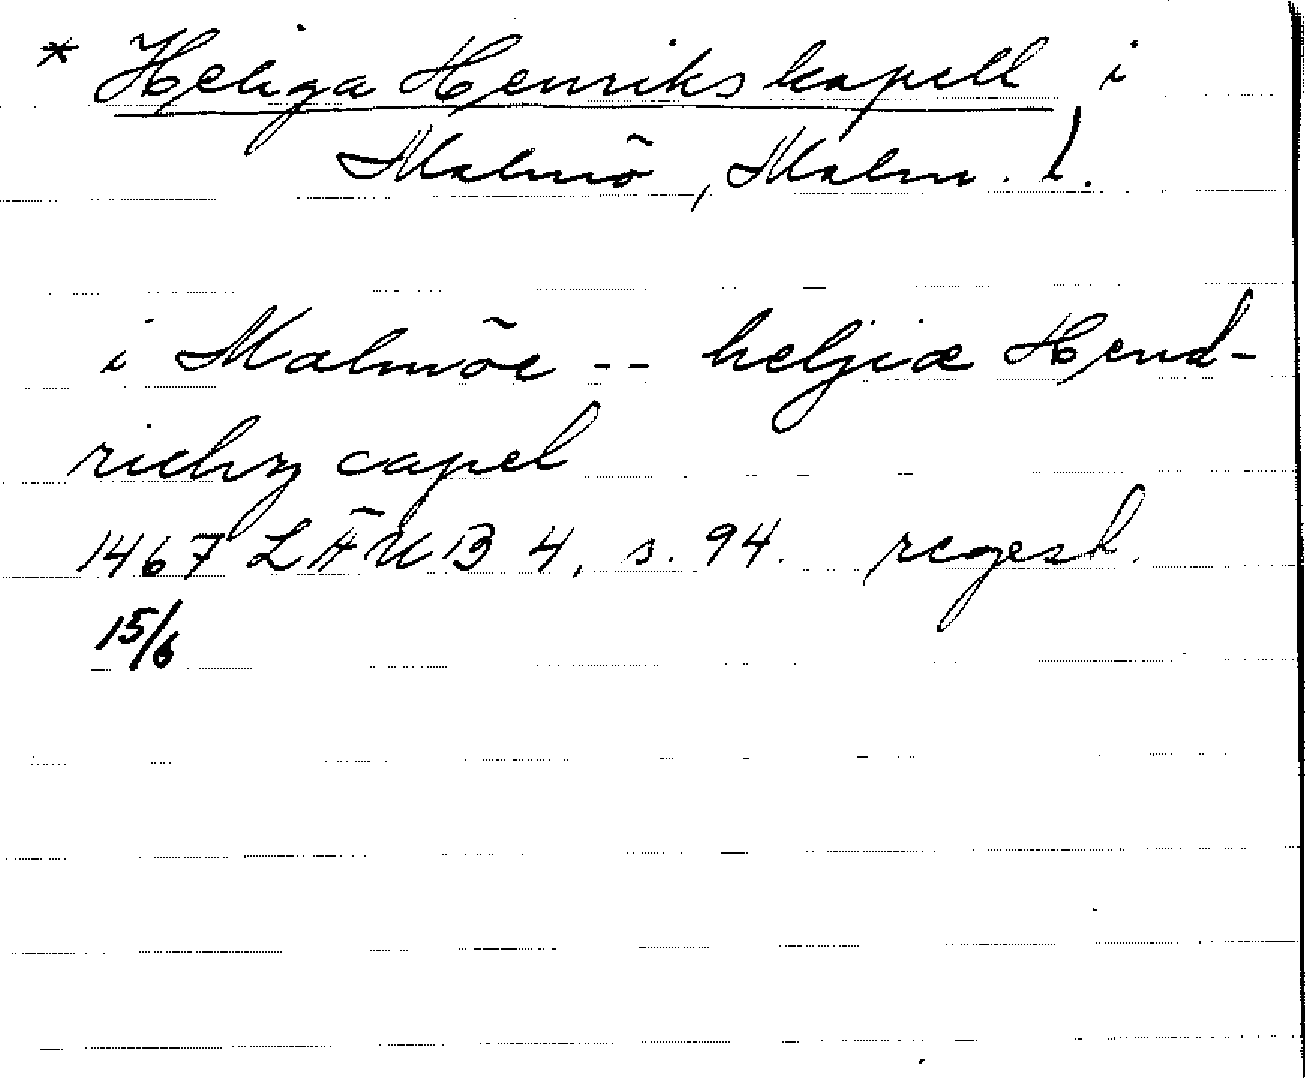 * Heliga Henriks kapell i
Malmö, Malm. l.
i Malmöe -- heljæ Hend-
richz capel
1467 LÄUB 4, s. 94. regest.
15/6